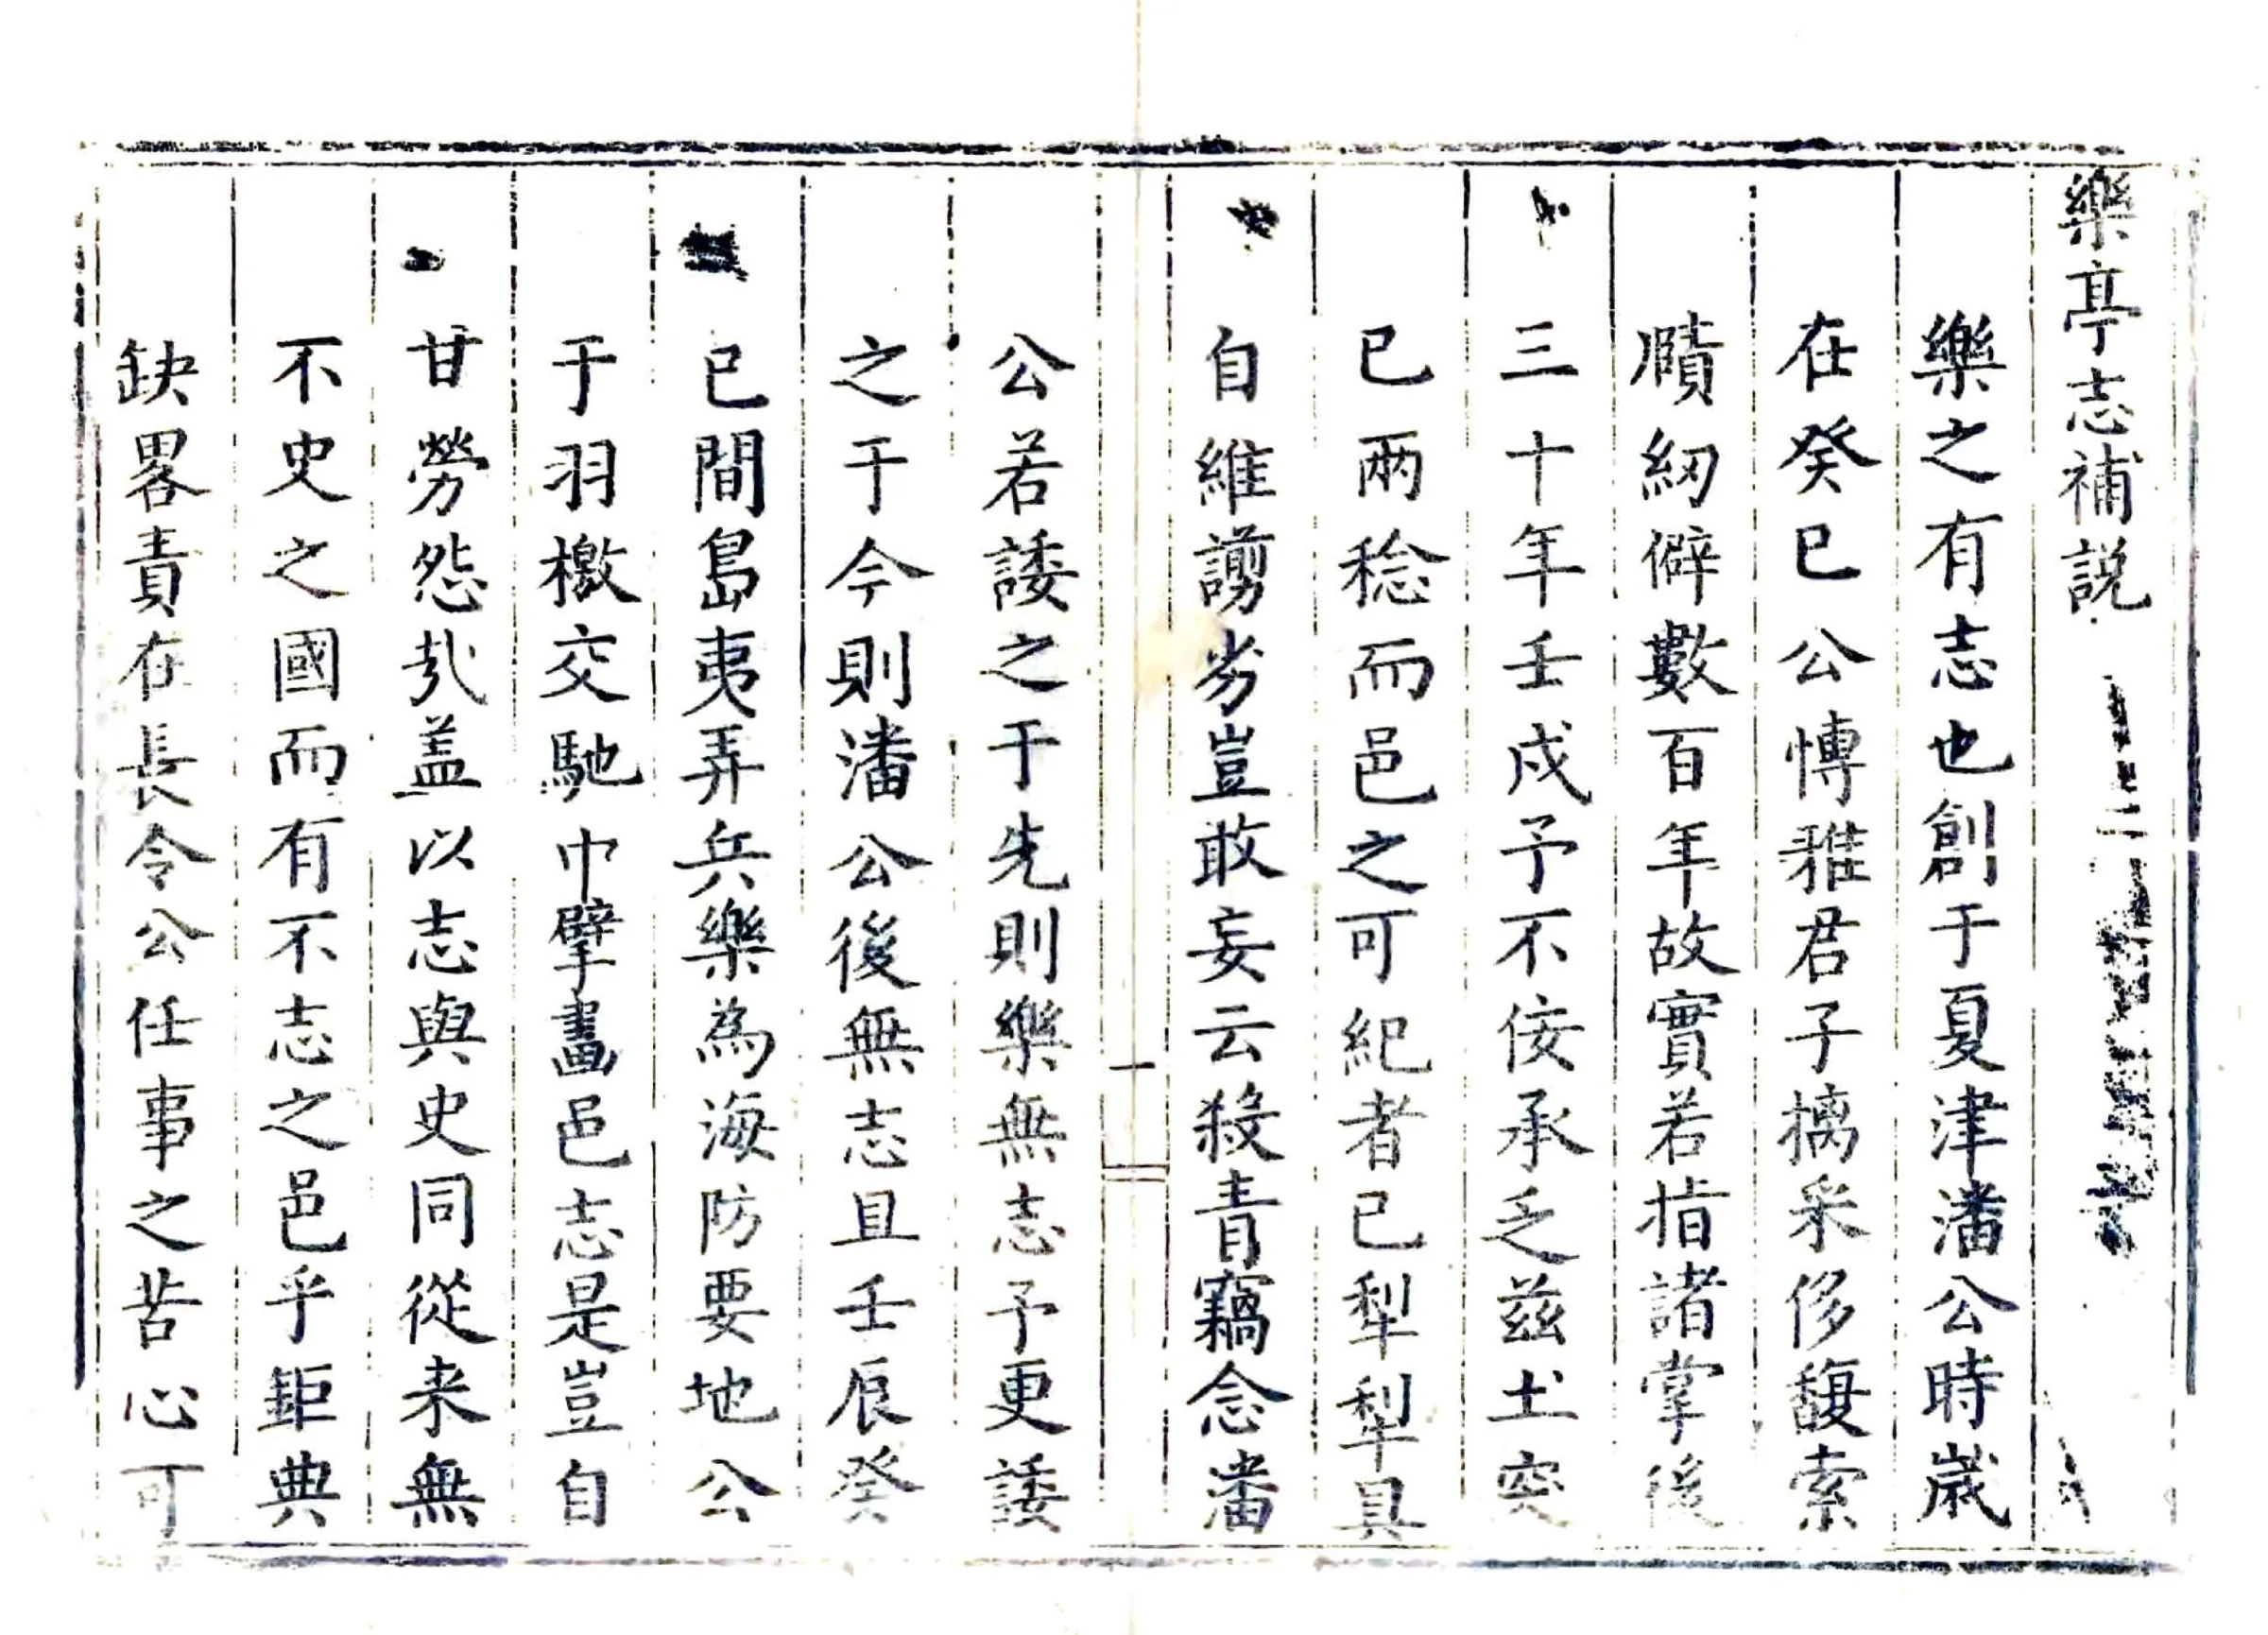 樂亭志補説
樂之有志也創于夏津潘公時歳
在癸巳公愽雅君子摛采侈馥索
賾紉僻數百年故實若指諸掌後
三十年壬戌予不佞承乏兹土突
已兩稔而邑之可紀者已犁犁具
自維謭劣豈敢妄云殺青竊念潘
公若諉之于先則樂無志予更諉
之于今則潘公後無志且壬辰癸
已間島夷弄兵樂為海防要地公
于羽檄交馳中擘畫邑志是豈自
甘勞怨㢤盖以志與史同從来無
不史之國而有不志之邑乎鉅典
缺畧責在長令公任事之苦心可
一